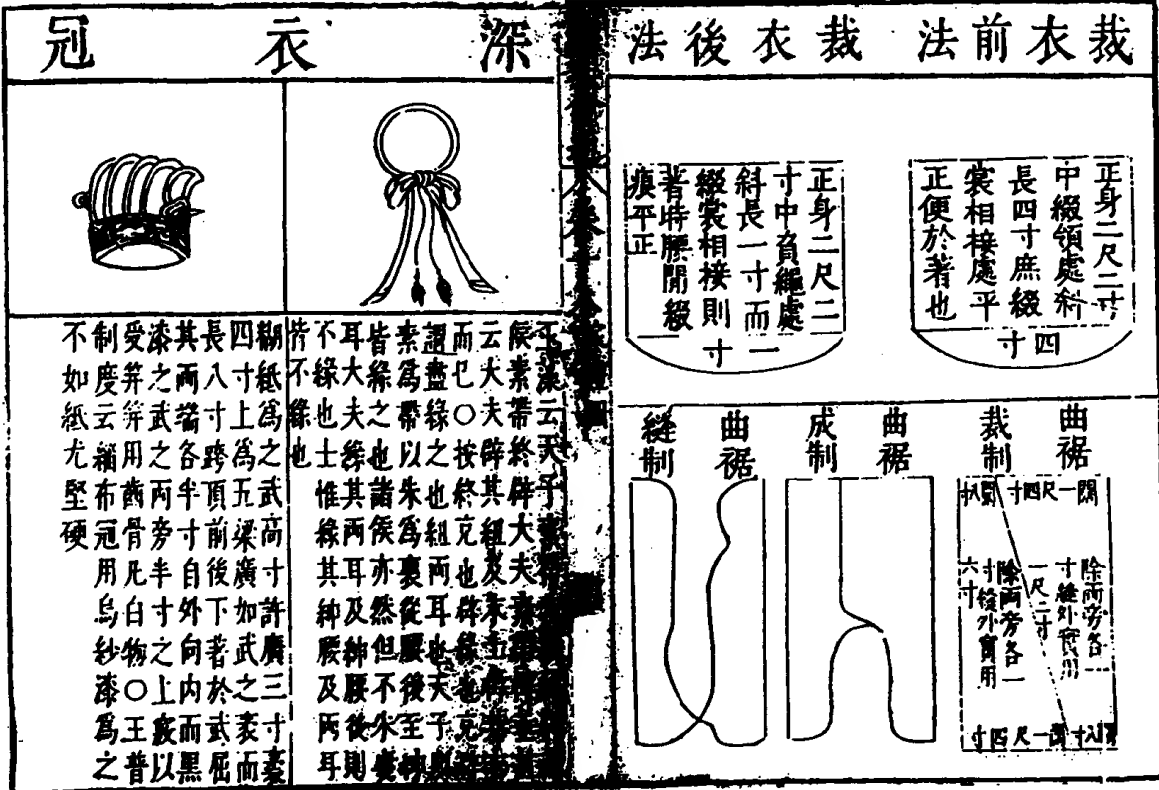 裁衣前法
裁衣後法
正身二尺二寸
中綴領處斜
長四寸庶綴
裳相接處平
正便於著也
四寸
正身二尺二
寸中負繩處
斜長一寸而
綴裳相接則
著時腰間綴
痕平正
一寸
曲裾
裁制
闊一尺四寸
闊八寸
除兩旁各一
寸縫外實用
一尺二寸
除兩旁各一
寸縫外實用
六寸
闊八寸
闊一尺四寸
曲裾
成制
曲裾
縫制
深衣冠
玉藻云天子素
侯素帶終辟大夫素
云大夫辟其紐及末士
而已○按終充也辟緣也充
謂盡緣之也紐兩耳也天子以
素為帶以朱為裏從腰後至紳
皆緣之也諸侯亦然但不朱裏
耳大夫緣其兩耳及紳腰後則
不緣也士惟緣其紳腰及兩耳
皆不緣也
糊紙為之武高寸許廣三寸袤
四寸上為五梁廣如武之袤而
長八寸跨頂前後下著於武屈
其兩端各半寸自外向內而黑
漆之武之兩旁半寸之上竅以
受筓筓用齒骨凡白物○王普
制度云緇布冠用烏紗漆為之
不如紙尤堅硬